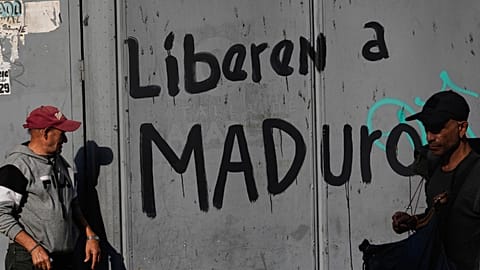 Liberen a
MADuro
29